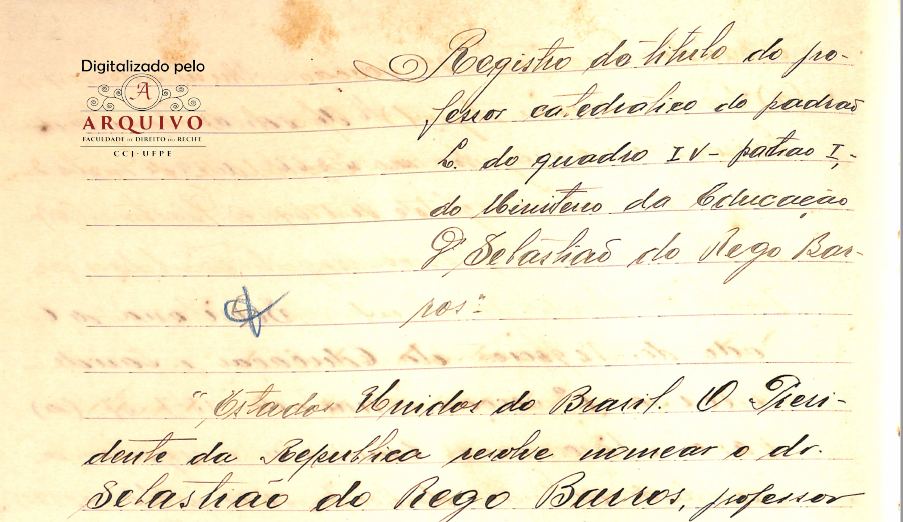 Digitalizado pelo
A
ARQUIVO
FACULDADE DE DIREITO DO RECIFE
CCJ - UFPE
Registro do titulo do pro-
fessor catedratico do padrão
L. do quadro IV - patrão I, -
do Ministerio da Educação
Dr Sebastião do Rego Bar-
ros"
"Estados Unidos do Brasil. O Presi-
dente da Republica resolve nomear o dr.
Sebastião do Rego Barros, professor